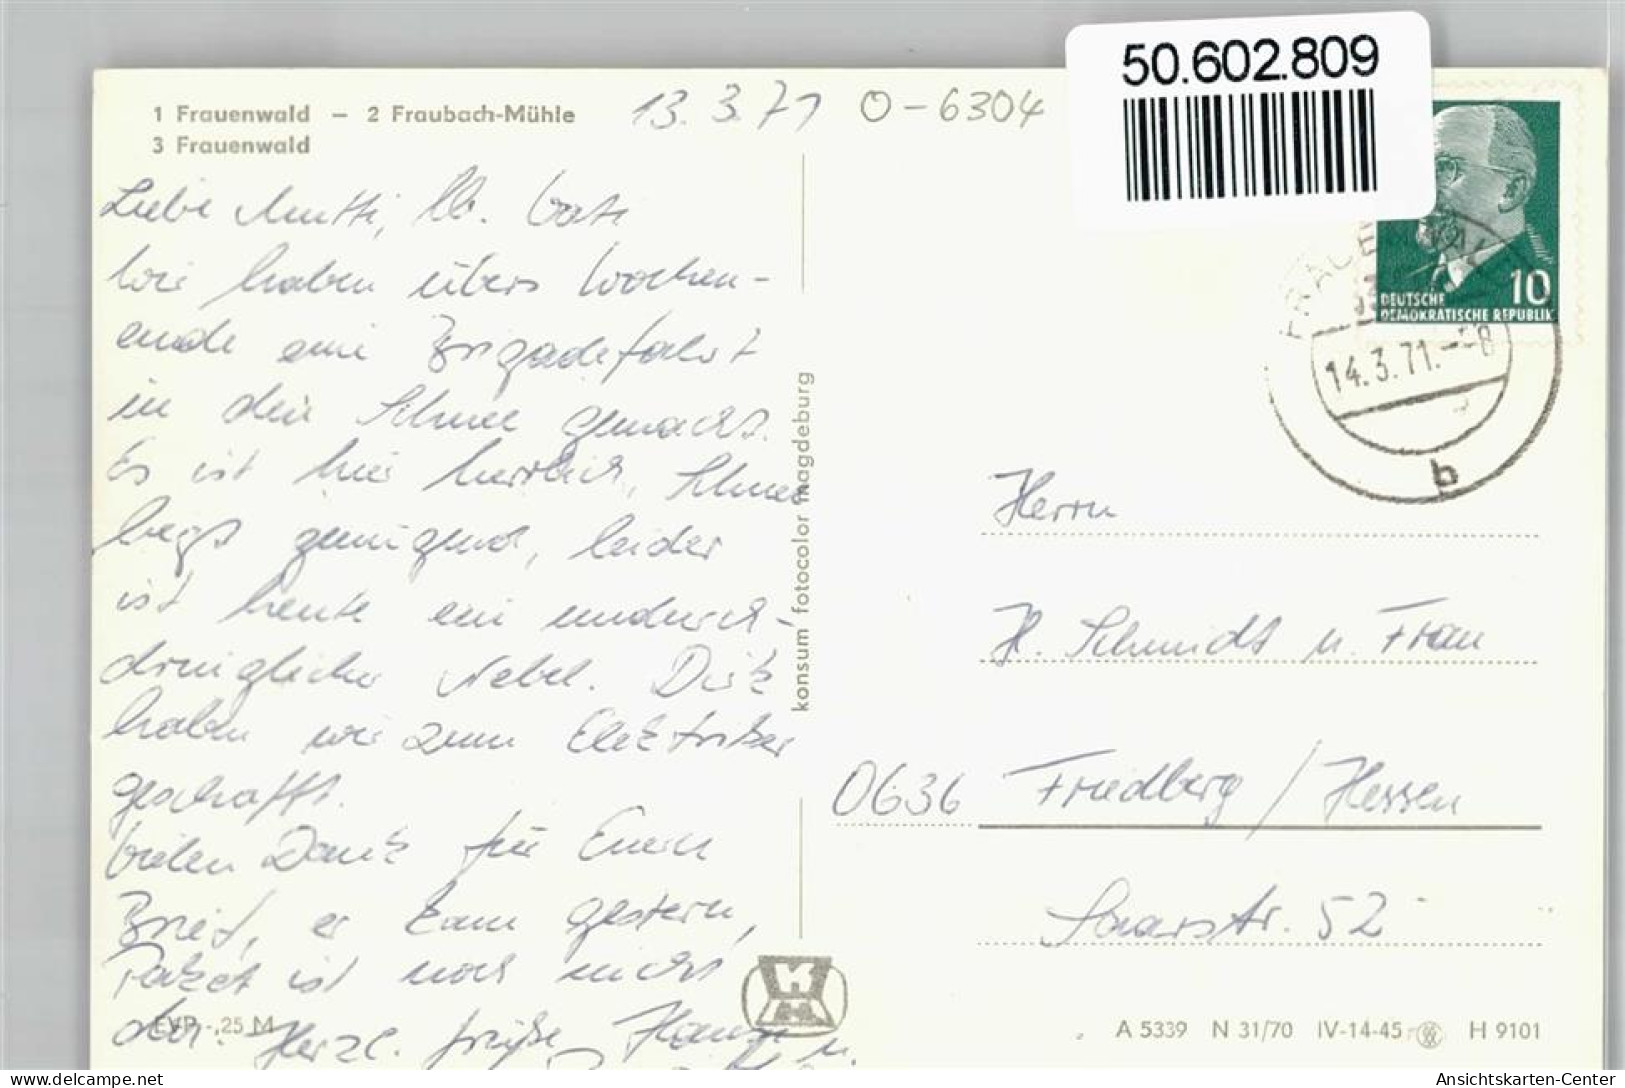 50.602.809
1 Frauenwald – 2 Fraubach-Mühle
3 Frauenwald
13.3.71
O-6304
Liebe Mutti, lb. Vati
wir haben übers Wochen-
ende eine Brigadefahrt
in den Schnee gemacht.
Es ist hier herrlich, Schnee
liegt genügend, leider
ist heute ein undurch-
dringlicher Nebel. Dirk
haben wir zum Elektriker
geschafft.
Vielen Dank für Euern
Brief, er kam gestern,
Paket ist noch nicht
da. Herzl. Grüße u.
EVP -,25 M
konsum fotocolor magdeburg
10
DEUTSCHE
DEMOKRATISCHE REPUBLIK
14.3.71.--8
b
Herrn
H. Schmidt u. Frau
0636 Friedberg / Hessen
Saarstr. 52
A 5339 N 31/70 IV-14-45 H 9101
delcampe.net
Ansichtskarten-Center